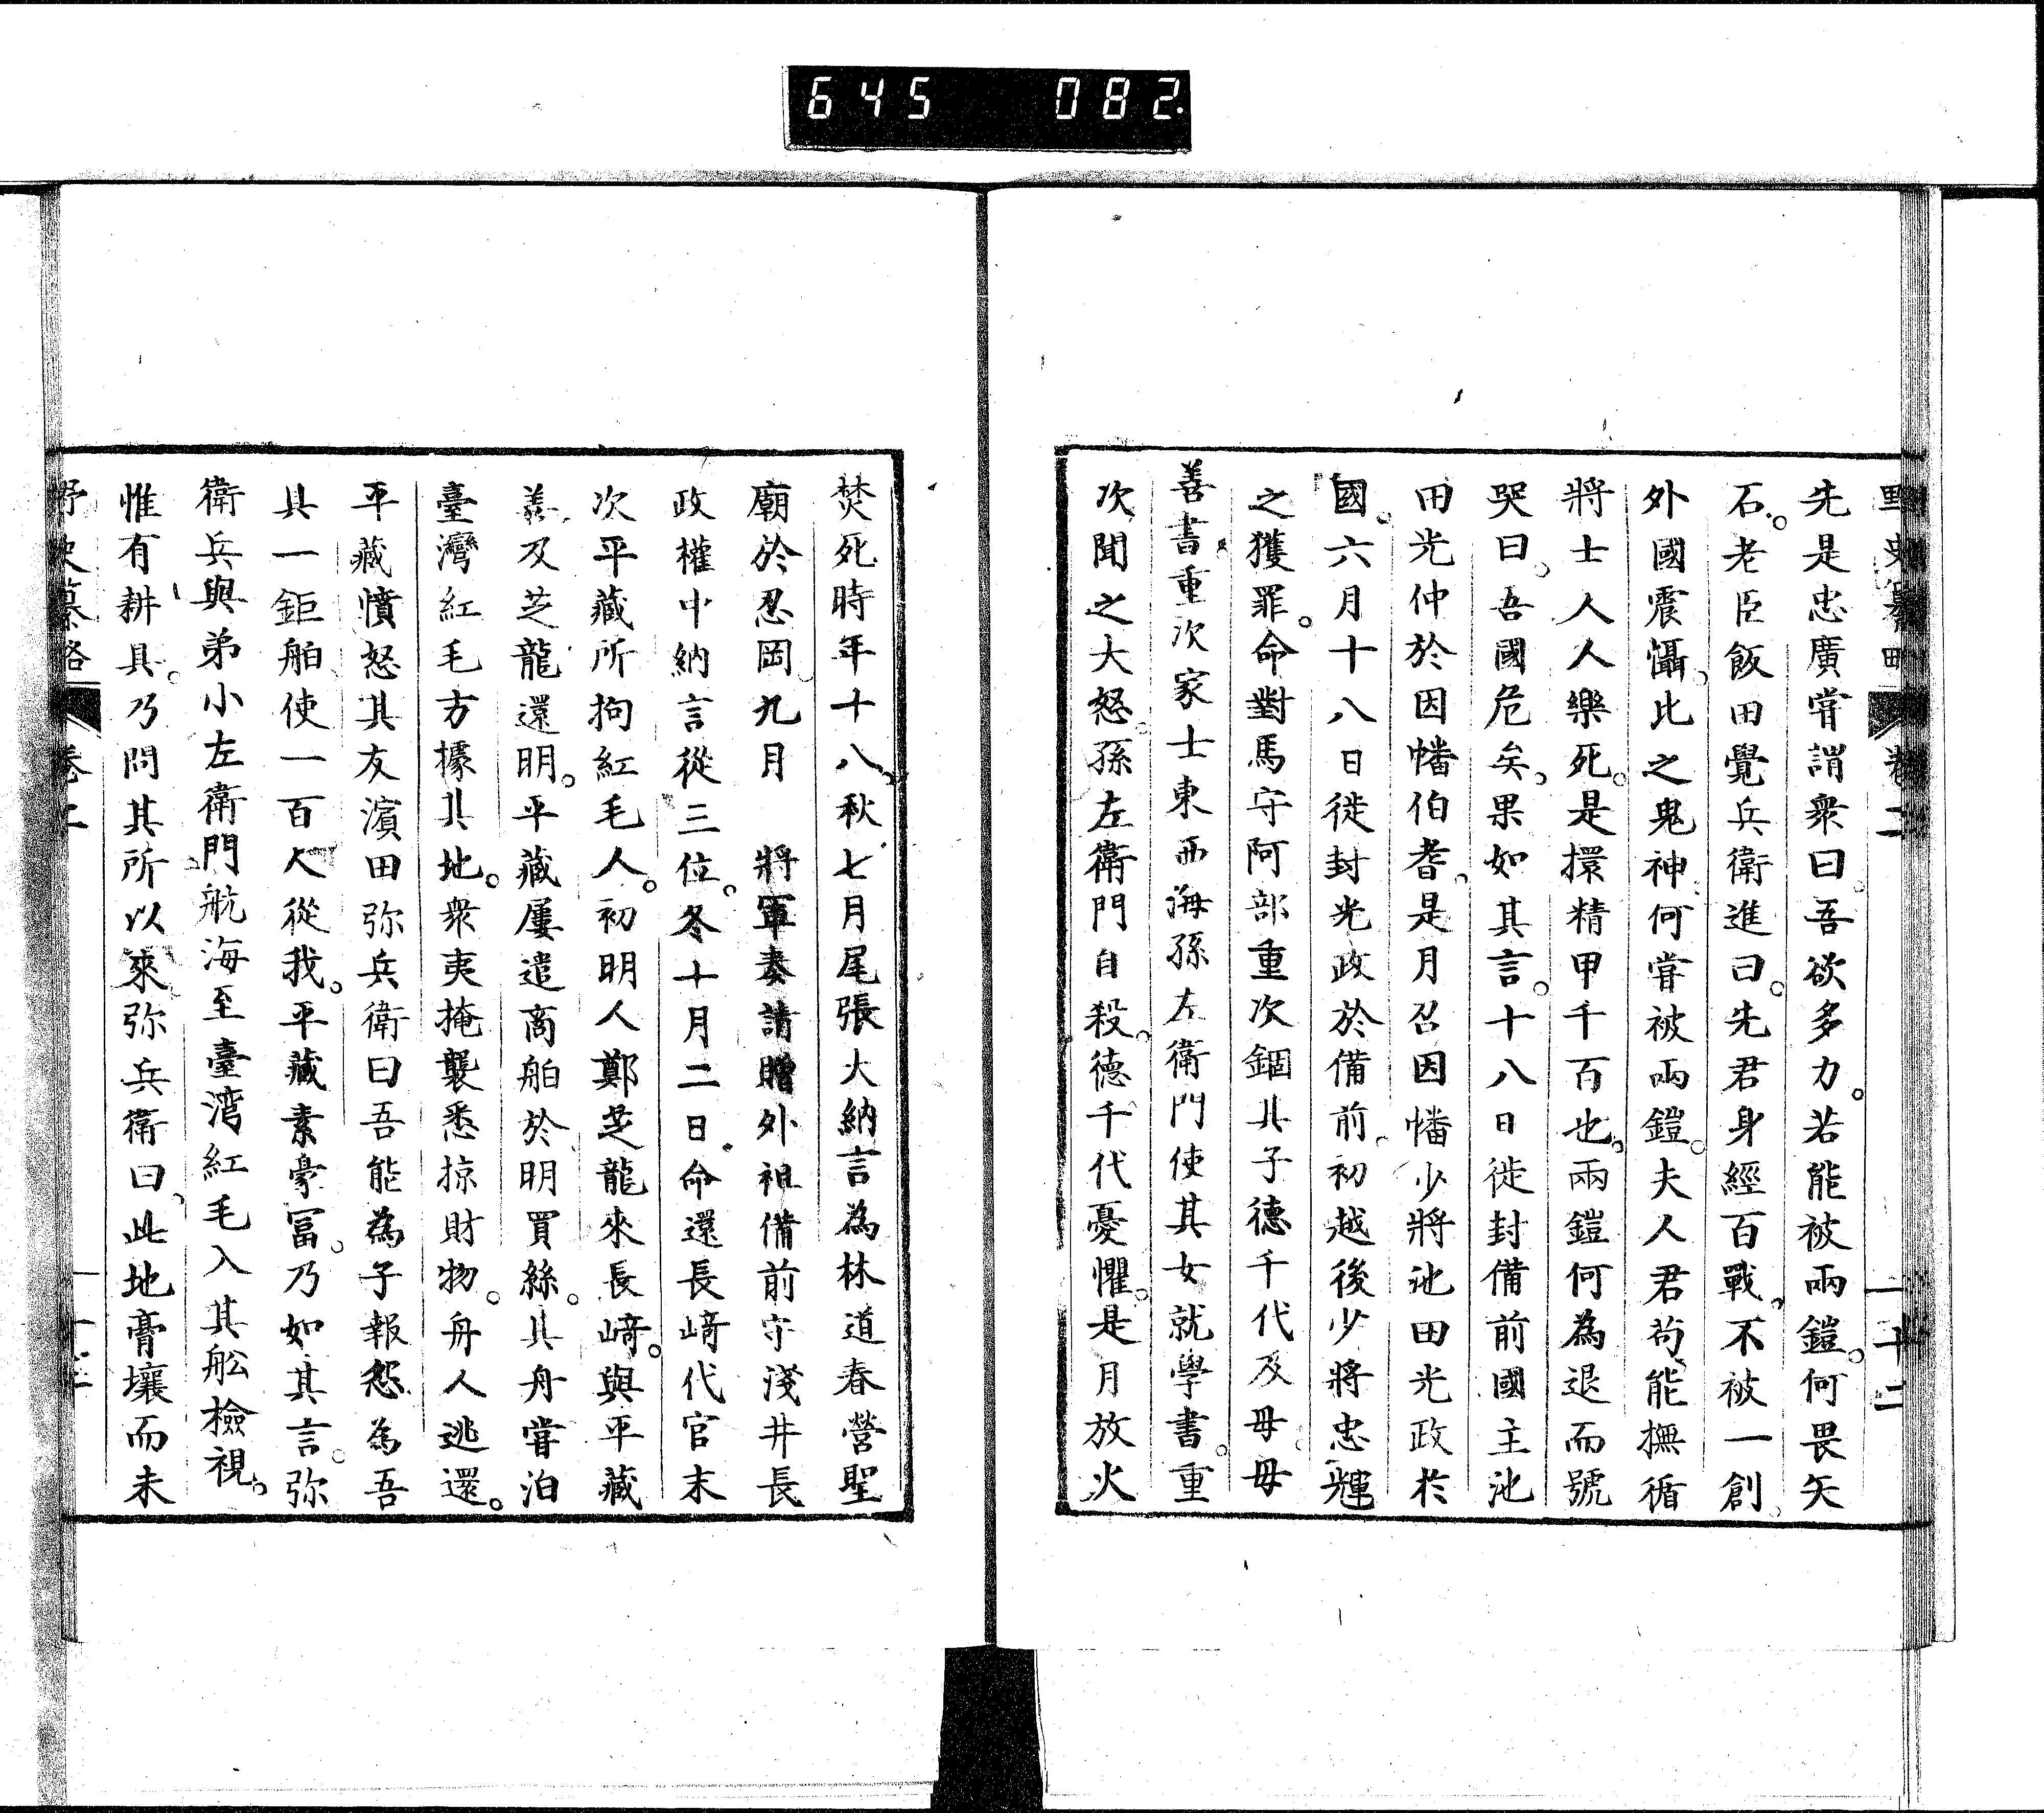 645 082
野史纂略 卷二 十二
先是忠廣嘗謂衆曰。吾欲多力。若能被兩鎧。何畏矢
石。老臣飯田覺兵衛進曰。先君身經百戰。不被一創。
外國震懾。比之鬼神。何嘗被兩鎧。夫人君苟能撫循
將士人人樂死。是擐精甲千百也。兩鎧何為退而號
哭曰。吾國危矣。果如其言。十八日徙封備前國主池
田光仲於因幡伯耆。是月召因幡少將池田光政於
國。六月十八日徙封光政於備前。初越後少將忠輝
之獲罪。命對馬守阿部重次錮其子德千代及母。母
善書。重次家士東西海孫左衛門使其女就學書。重
次聞之大怒。孫左衛門自殺。德千代憂懼。是月放火
焚死時年十八。秋七月尾張大納言為林道春營聖
廟於忍岡。九月 將軍奏請贈外祖備前守淺井長
政權中納言從三位。冬十月二日。命還長﨑代官末
次平藏所拘紅毛人。初明人鄭芝龍來長﨑。與平藏
善。及芝龍還明。平藏屢遣商舶於明買絲。其舟嘗泊
臺灣紅毛方據其地。衆夷掩襲悉掠財物。舟人逃還。
平藏憤怒其友濵田弥兵衛曰吾能為子報怨為吾
具一鉅舶使一百人從我。平藏素豪冨。乃如其言。弥
衛兵與弟小左衛門航海至臺湾紅毛入其舩檢視。
惟有耕具。乃問其所以來弥兵衛曰。此地膏壤而未
野史纂略 卷二